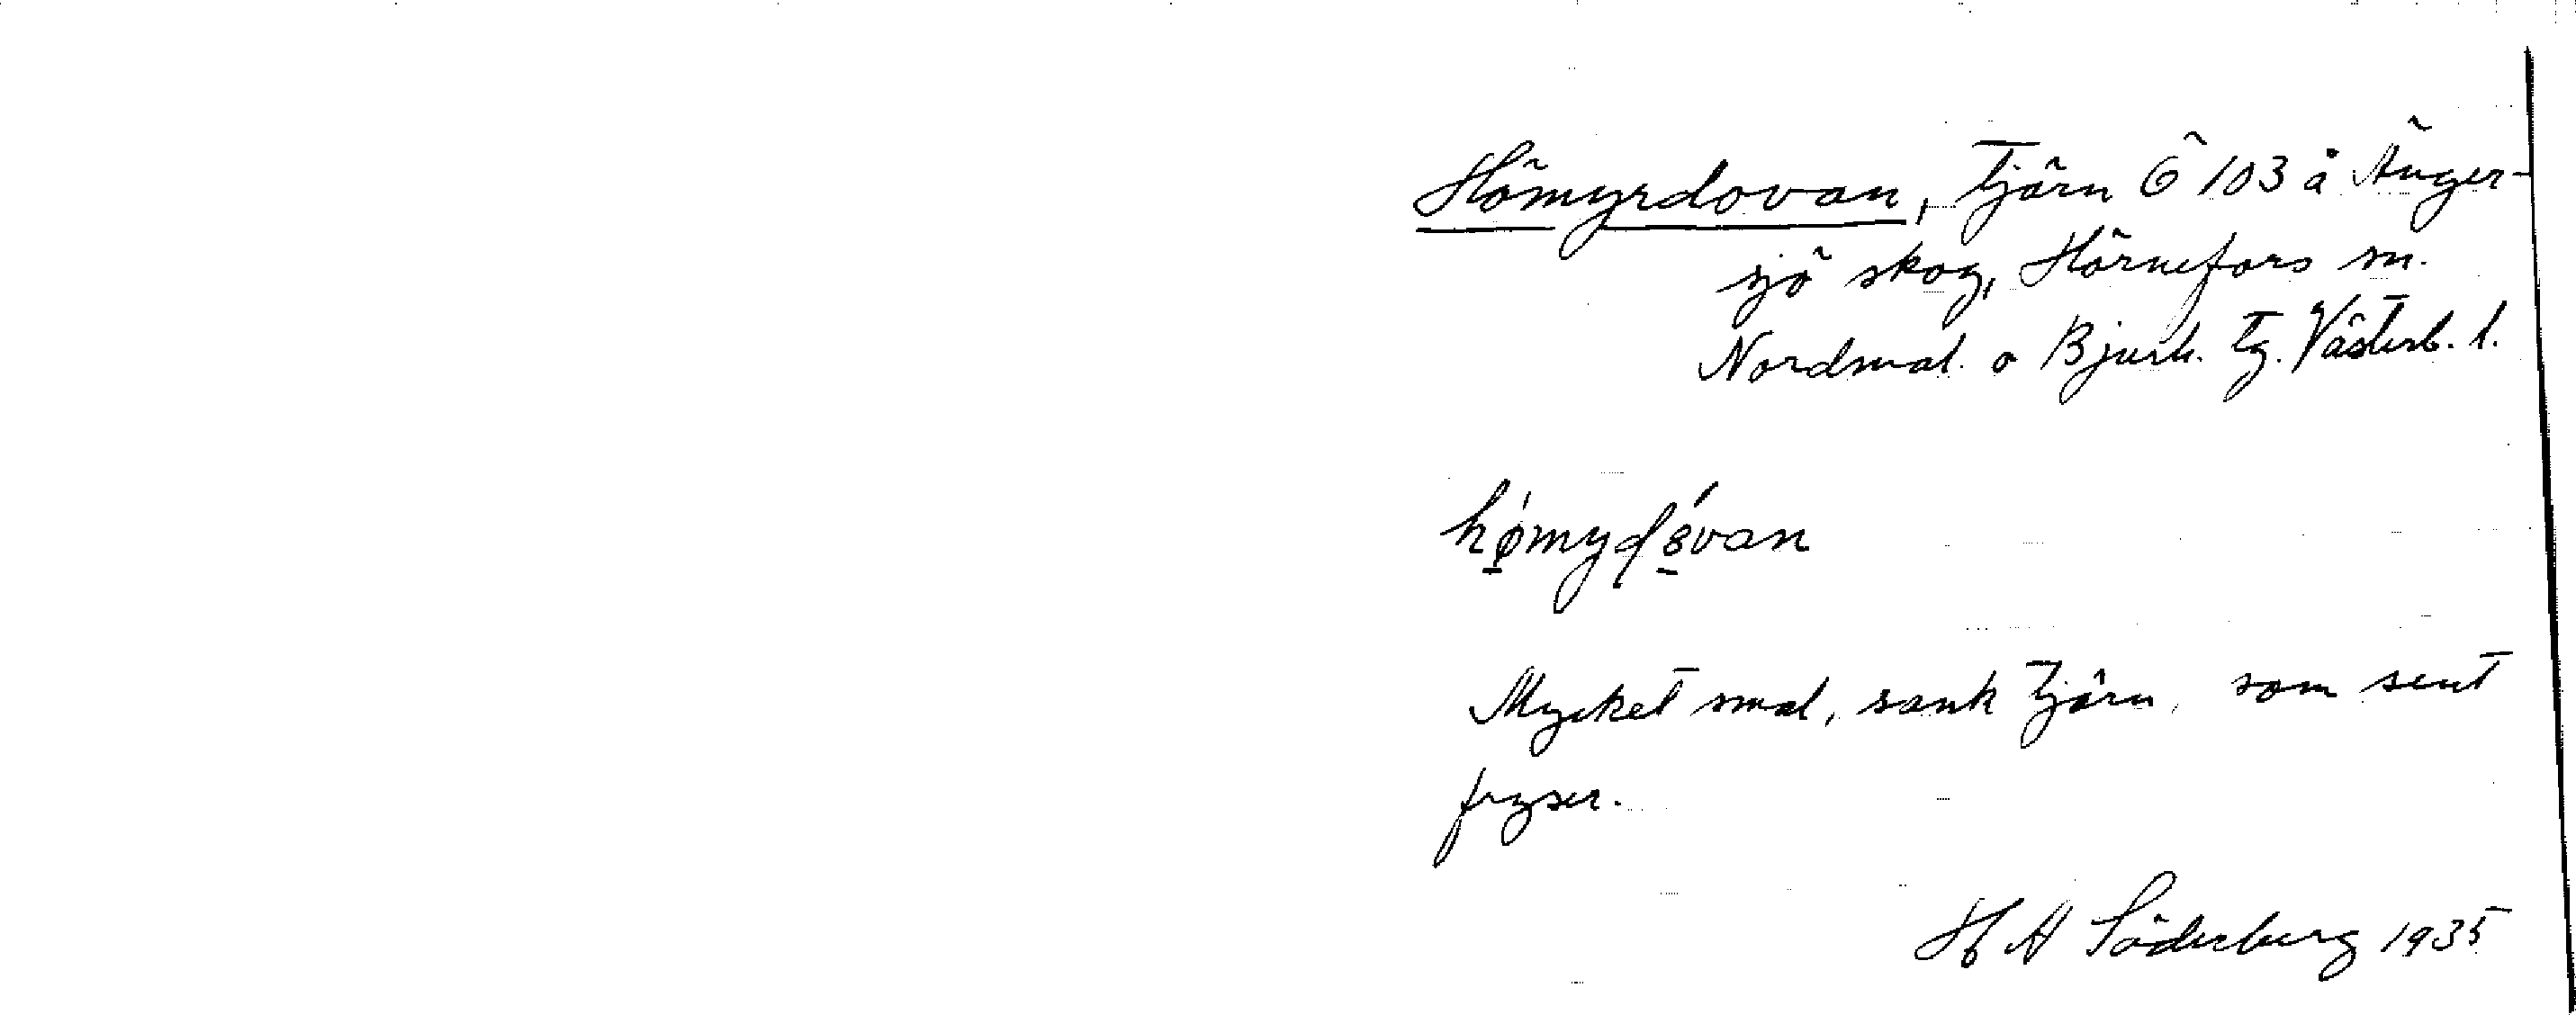 Hömyrdovan, Tjärn Ö 103 å Änger-
sjö skog, Hörnefors sn.
Nordmal. o Bjurh. tg. Västerb. l.
hǿ̱myd
Mycket smal, sank tjärn, som sent
fryser.
H A Söderberg 1935